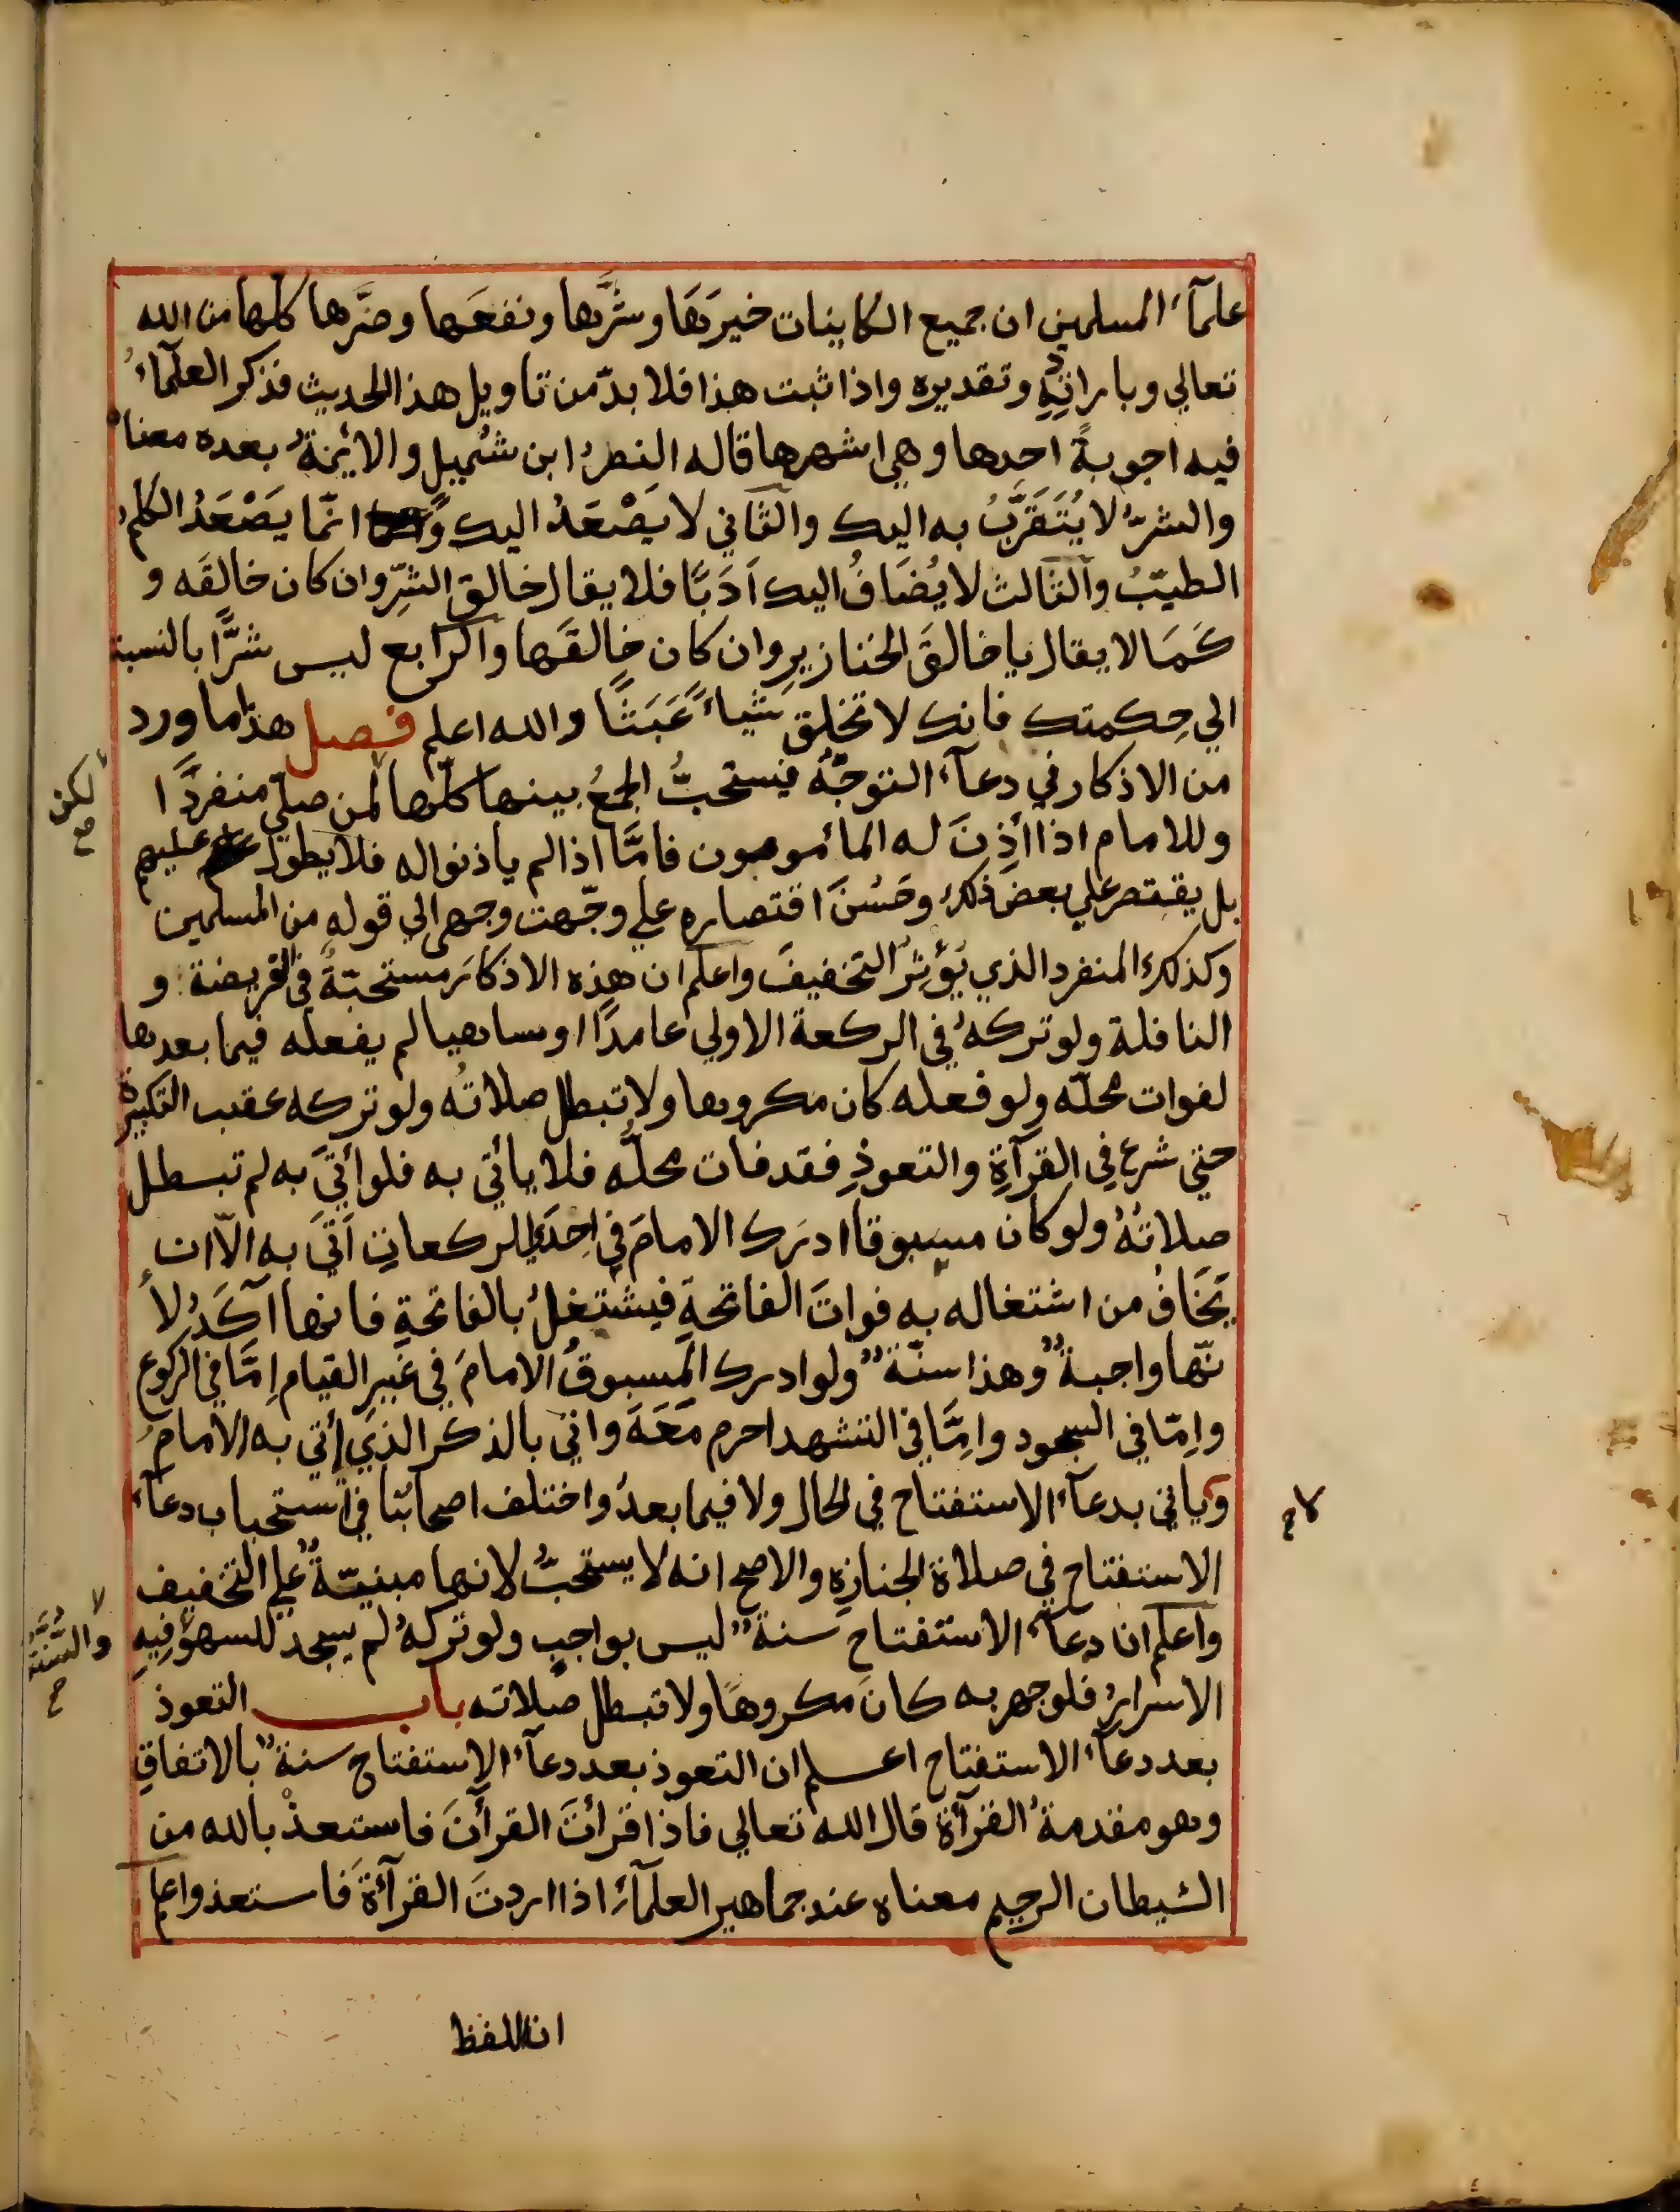 علمآء المسلمين ان جميع الكاينات خيرَهَا وشرَّها ونفعَها وضرَّها كلّها من الله
تعالي وبارادتِهِ وتقديره واذا ثبت هذا فلا بدّ من تاويل هذا الحديث فذكر العلمآءُ
فيه اجوبةً احدها وهي اشهرها قاله النضرُ ابن شُميل والائِمّةُ بعده معناه
والشرّ لا يُتَقَرَّبُ به اليك والثاني لا يَصْعَدُ اليك و انّما يَصْعَدُ الكلمُ
الطيّبُ والثالث لا يُضَافُ اليك اَدَبًا فلا يقال خالق الشرِّ وان كان خالقَه و
كَمَا لا يقال يا خالقَ الخنازيرِ وان كان خالقَها والرابع ليس شرًّا بالنسبة
الي حِكمتك فانك لا تخلق شياءً عَبَثًا والله اعلم فصل هذا ما ورد
من الاذكار في دعآء التوجّه فيستحبُّ الجمعُ بينها كلّها لمن صلّي منفردًا
وللامام اذا أذِنَ له المأمومون فامَّا اذا لم ياذنوا له فلا يطول عليهم
بل يقتصر علي بعض ذلك وحَسُنَ اقتصاره علي وجّهت وجهي الي قوله من المسلمين
وكذلك المنفرد الذي يُؤْثِرُ التخفيفَ واعلم ان هذه الاذكارَ مستحبّةٌ في الفريضة و
النافلة ولو تركهُ في الركعة الاولي عامدًا او ساهيا لم يفعله فيما بعدها
لفوات محلّه ولو فعله كان مكروها ولا تبطل صلاتُه ولو تركه عقب التكبيرة
حتي شرع في القرآءةِ والتعوذِ فقد فات محلُّه فلا يأتي به فلو أتيَ به لم تبطل
صلاتُهُ ولو كان مسبوقا ادرك الامامَ في اِحدَي الركعاتِ اَتَيَ به الّا ان
يَخَافُ من اشتغاله به فواتَ الفاتحةِ فيشتغلُ بالفاتحةِ فانها آكَدُ لأ
نّها واجبةٌ وهذا سنّةٌ ولو ادرك المسبوقُ الامامَ في غيرِ القيام اِمّا في الركوع
واِمّا في السجود واِمَّا في التشهد احرم مَعَهَ واتي بالذكر الذي أتي به الامامُ
وياتي بدعآء الاستفتاح في الحال ولا فيما بعدُ واختلف اصحابُنا في استحباب دعآء
الاستفتاح في صلاة الجنازةِ والاصح انه لا يستحبُّ لانها مبنيّةٌ علي التخفيف
واعلم ان دعآء الاستفتاح سنةٌ ليس بواجبٍ ولو تركهُ لم يسجد للسهو فِيهِ
الاسرارُ فلو جهر به كان مكروهًا ولا تبطل صلاته باب التعوذ
بعد دعآء الاستفتاح اعلم ان التعوذ بعد دعآء الاستفتاح سنةٌ بالاتفاقِ
وهو مقدمةُ القرآءة قال الله تعالي فاذا قرأتَ القرأنَ فاستعذْ بالله من
الشيطان الرجيم معناه عند جماهير العلمآء اذا اردتَ القرآءةَ فاستعذ واعلم
ان اللفظ
لكن
صح
لا
صح
والسُّنَّةُ
صح